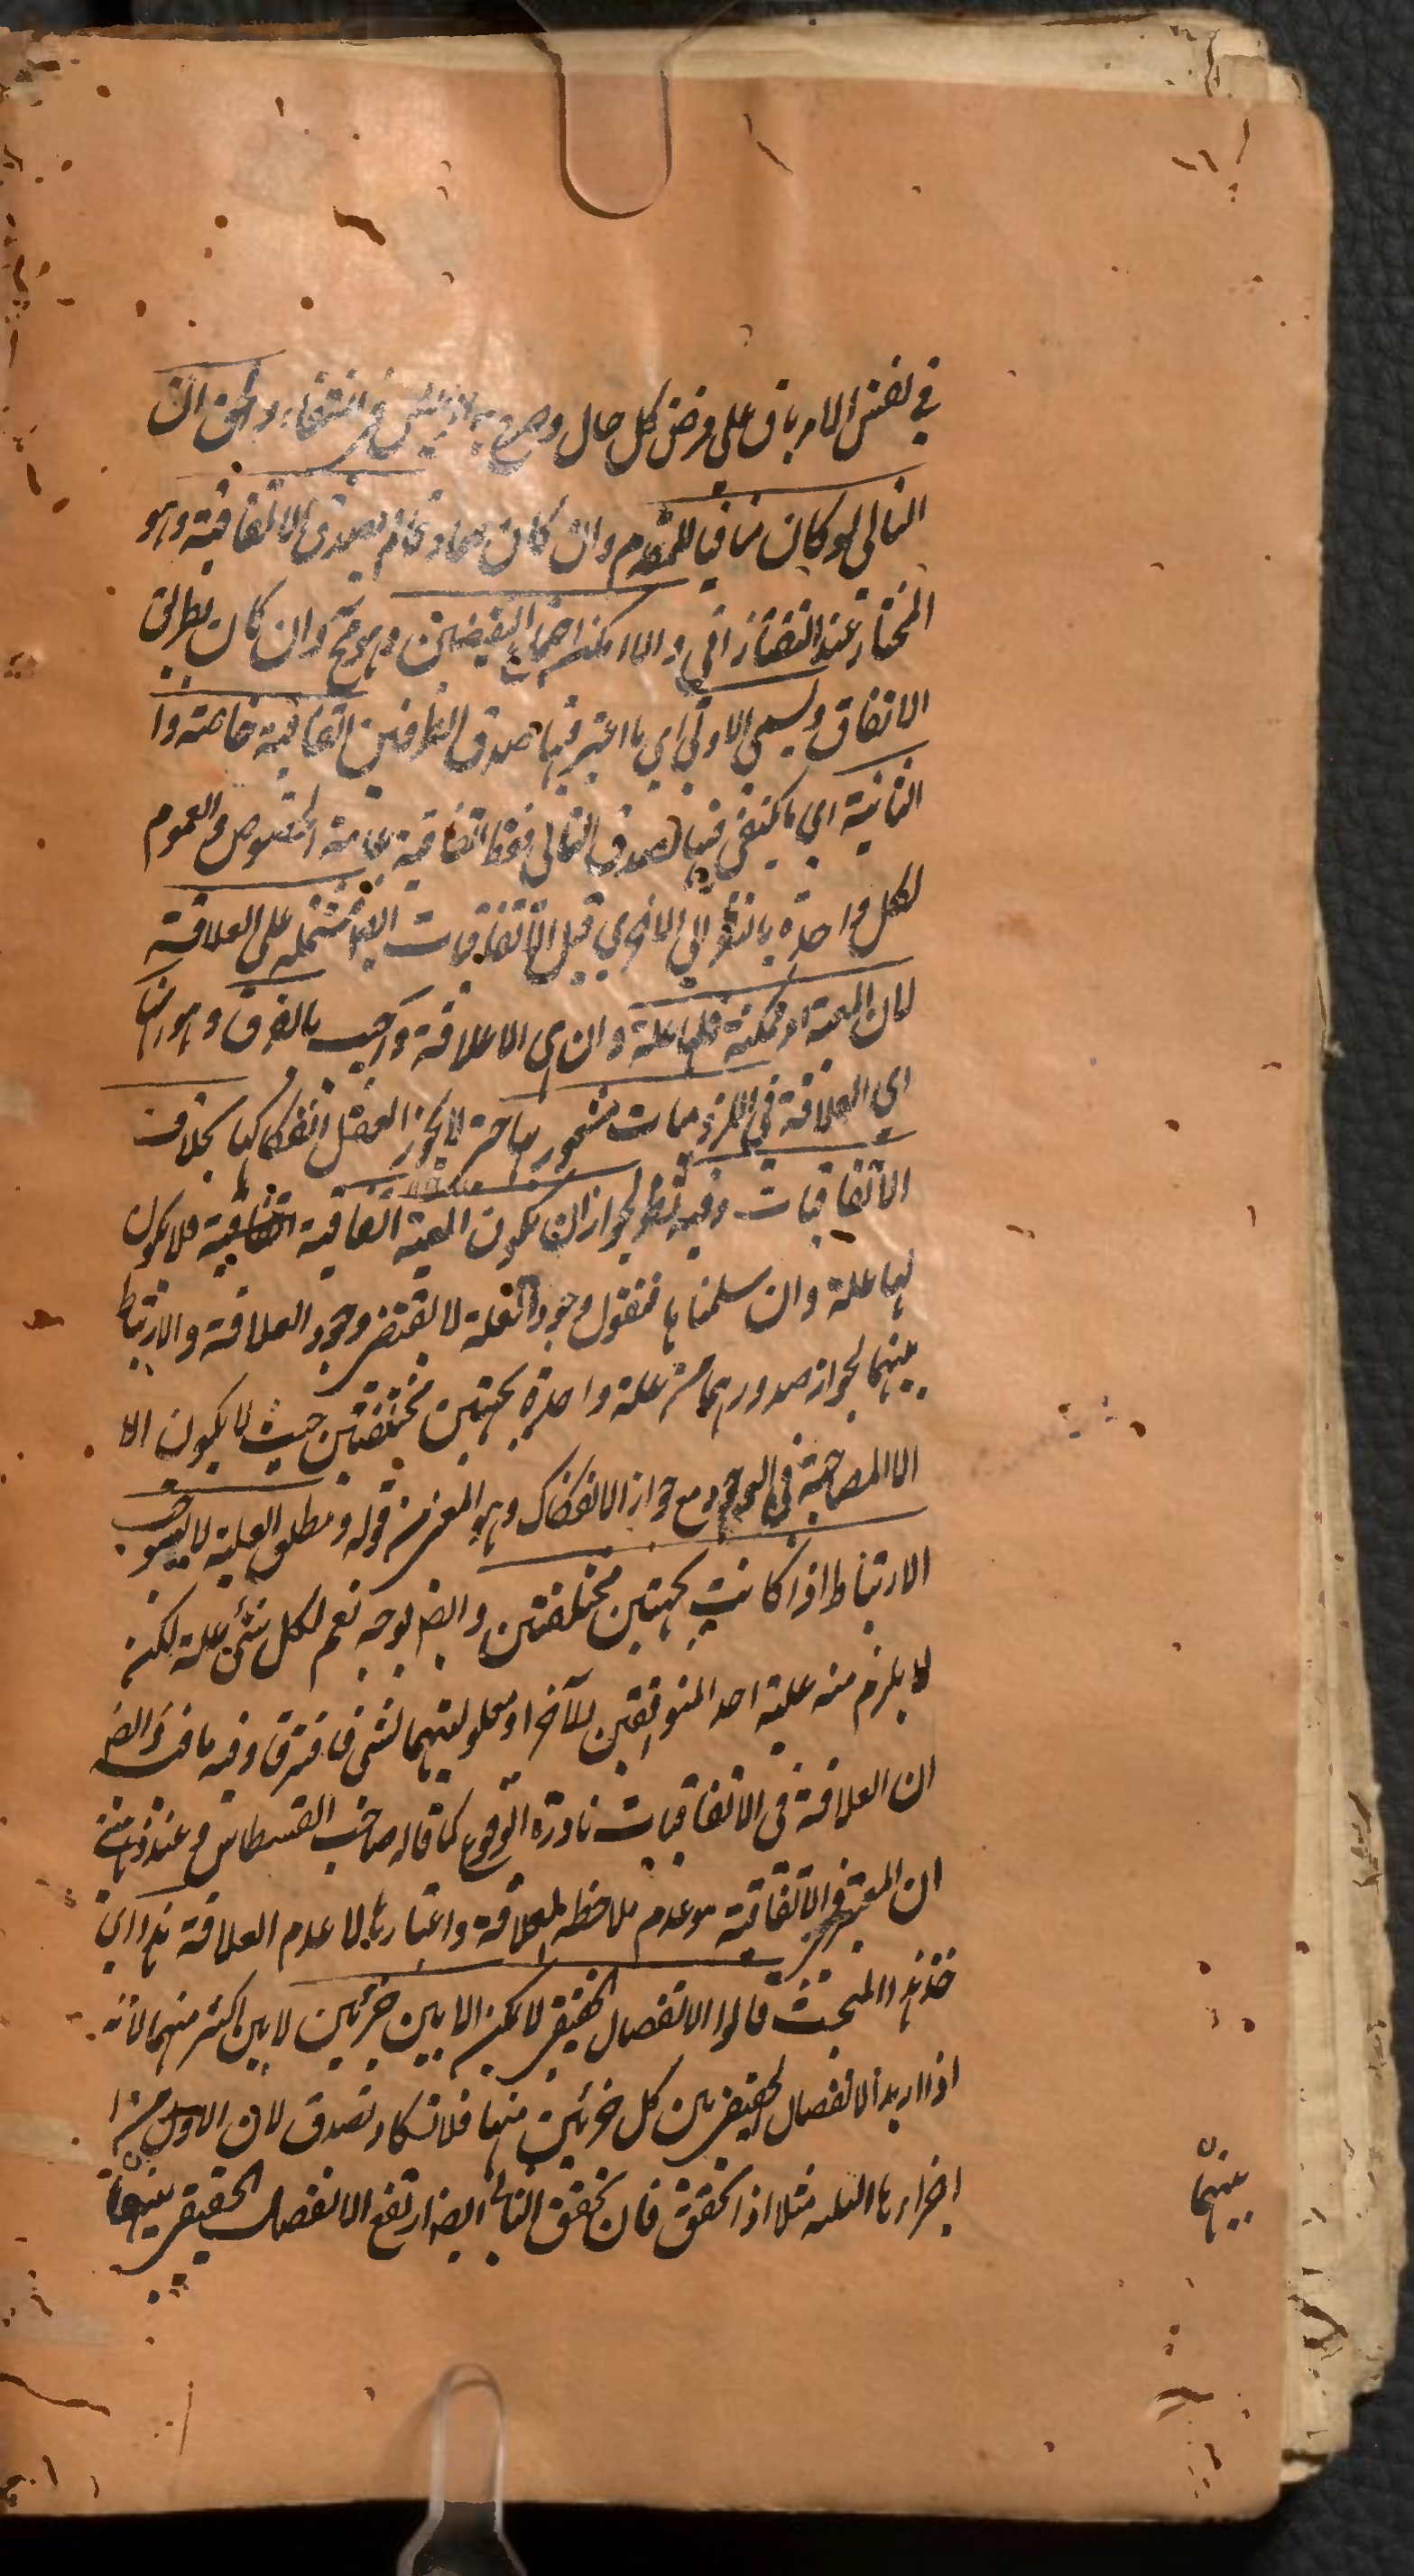 في نفس الامر باق على فرض كل حال وضع والحق ان
التالي لو كان منافيا للمقدم وان كان صادقا لم يصدق الاتفاقية وهو
المختار عند التفتازاني والا امكن اجتماع النقيضين وهو مح وان كان بطريق
الاتفاق ويسمى الاولى اي ما اعتبر فيها صدق الطرفين اتفاقية خاصة وا
الثانية اي ما يكتفى فيها بصدق التالي فقط اتفاقية عامة لخصوص والعموم
لكل واحدة بالنظر الى الاخرى قيل الاتفاقيات ايضا مشتملة على العلاقة
لان المعية امر ممكنة فلها علة وان هي الا علاقة واجيب بالفرق وهو انها
اي العلاقة في اللزوميات مشعور بها حتى لا يجوز العقل انفكاكها بخلاف
الاتفاقيات وفيه نظر لجواز ان يكون المعية اتفاقية فلا يكون
لها علة وان سلمناها فنقول وجود العلة لا يقتضي وجود العلاقة والارتباط
بينهما لجواز صدورهما من علة واحدة بجهتين مختلفتين حيث لا يكون الا
الا المصاحبة في الوجود مع جواز الانفكاك وهو المعني من قوله ومطلق العلية لا يستوجب
الارتباط اذا كانت بجهتين مختلفتين وايضا بوجه نعم لكل شئ علة لكنه
لا يلزم منه علية احد المتوافقين للآخر او معلوليتهما لشئ فافترقا وفيه ما فيه وايضا
ان العلاقة في الاتفاقيات نادرة الوقوع كما قال صاحب القسطاس وعند
ان المعتبر في الاتفاقية هو عدم ملاحظة العلاقة واعتبارها لا عدم العلاقة هذا
خذ هذا المبحث قالوا الانفصال الحقيقي لا يمكن الا بين جزئين لا بين اكثر منهما لانه
اذا اريد الانفصال الحقيقي بين كل جزئين منها فلا تكاد تصدق لان الاول من
اجزائها الثلثة مثلا اذا تحقق فان تحقق الثاني ايضا ارتفع الانفصال الحقيقي بينهما
بينهما